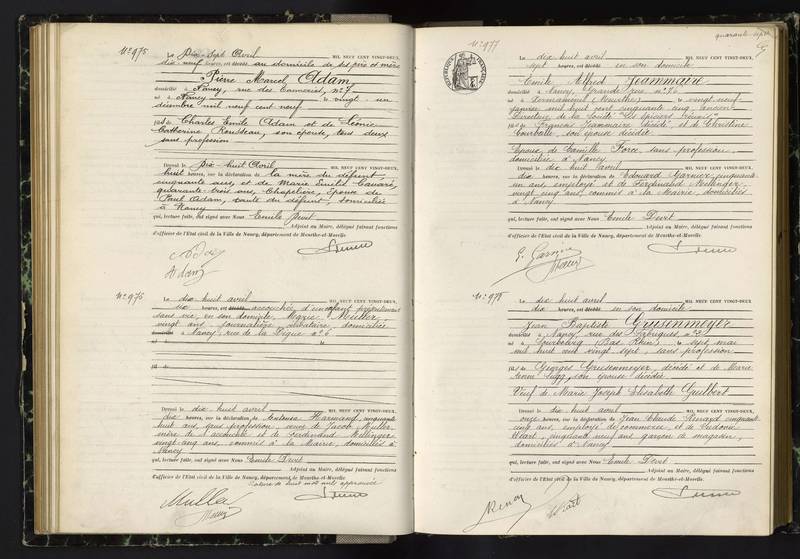 N° 975
Le Dix-Sept Avril MIL NEUF CENT VINGT-DEUX,
dix neuf heures, est décédé au domicile de ses père et mère
Pierre Marcel Adam
domicilié à Nancy, rue des n° 7
né à Nancy le vingt un
décembre mil neuf cent neuf
fils de Charles Emile Adam et de Léonie
Catherine Rousseau, son épouse, tous deux
sans profession
Dressé le Dix-huit Avril MIL NEUF CENT VINGT-DEUX,
huit heures, sur la déclaration de la mère du défunt,
cinquante ans, et de Marie Emélie
quarante trois ans, Chapelière, Epouse de
Paul Adam, tante du défunt, domiciliée
à Nancy
qui, lecture faite, ont signé avec Nous Emile Devit
Adjoint au Maire, délégué faisant fonctions
d'officier de l'Etat civil de la Ville de Nancy, département de Meurthe-et-Moselle.
Adam
N° 976
Le dix huit avril MIL NEUF CENT VINGT-DEUX,
dix heures, est accouchée d'un enfant
sans vie, en son domicile, Marie Muller
vingt ans, journalière, célibataire, domiciliée
à Nancy, rue de la Digue n° 6
né à le
fils de
Dressé le dix huit avril MIL NEUF CENT VINGT-DEUX,
dix heures, sur la déclaration de Harmand, cinquante
huit ans, sans profession, veuve de Jacob Muller,
mère de l'accouchée et de Ferdinand Mellinger,
vingt cinq ans, commis à la Mairie, domiciliés à
Nancy
qui, lecture faite, ont signé avec Nous Emile Devit
Adjoint au Maire, délégué faisant fonctions
d'officier de l'Etat civil de la Ville de Nancy, département de Meurthe-et-Moselle.
Rature de huit mots nuls approuvée
Muller
quarante sept
N° 977
RÉPUBLIQUE FRANÇAISE
Le dix huit avril MIL NEUF CENT VINGT-DEUX,
sept heures, est décédé en son domicile
Emile Alfred Jeanmaire
domicilié à Nancy, Grande rue n° 76
né à le vingt neuf
janvier mil huit cent cinquante cinq, ancien
Directeur de la Société "Les Epiciers Réunis"
fils de François Jeanmaire décédé et de Christine
son épouse décédée
Epoux de Camille Force, sans profession,
domiciliée à Nancy
Dressé le dix huit avril MIL NEUF CENT VINGT-DEUX,
dix heures, sur la déclaration de Edouard Garnier, cinquante
un ans, employé et de Ferdinand Mellinger,
vingt cinq ans, commis à la Mairie, domiciliés
à Nancy
qui, lecture faite, ont signé avec Nous Emile Devit
Adjoint au Maire, délégué faisant fonctions
d'officier de l'Etat civil de la Ville de Nancy, département de Meurthe-et-Moselle.
G. Garnier
N° 978
Le dix huit avril MIL NEUF CENT VINGT-DEUX,
dix heures, est décédé en son domicile
Jean Baptiste Griesenmeyer
domicilié à Nancy, rue des Fabriques n°
né à Sourbourg (Bas Rhin) le sept mai
mil huit cent vingt sept, sans profession
fils de Georges Griesenmeyer, décédé et de Marie
Anne son épouse décédée
Veuf de Marie Joseph Elisabeth Guilbert
Dressé le dix huit avril MIL NEUF CENT VINGT-DEUX,
onze heures, sur la déclaration de Jean Claude Renard cinquante
cinq ans, employé de commerce, et de
Huart, cinquante neuf ans garçon de magasin,
domiciliés à Nancy
qui, lecture faite, ont signé avec Nous Emile Devit
Adjoint au Maire, délégué faisant fonctions
d'officier de l'Etat civil de la Ville de Nancy, département de Meurthe-et-Moselle.